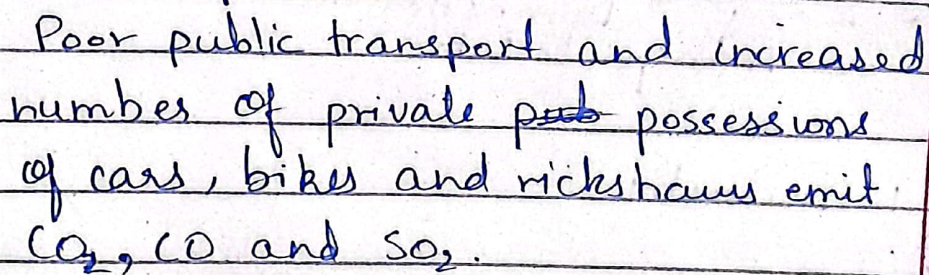 Poor public transport and increased
number of private possessions
of cars, bikes and rickshaws emit
CO₂, CO and SO₂.